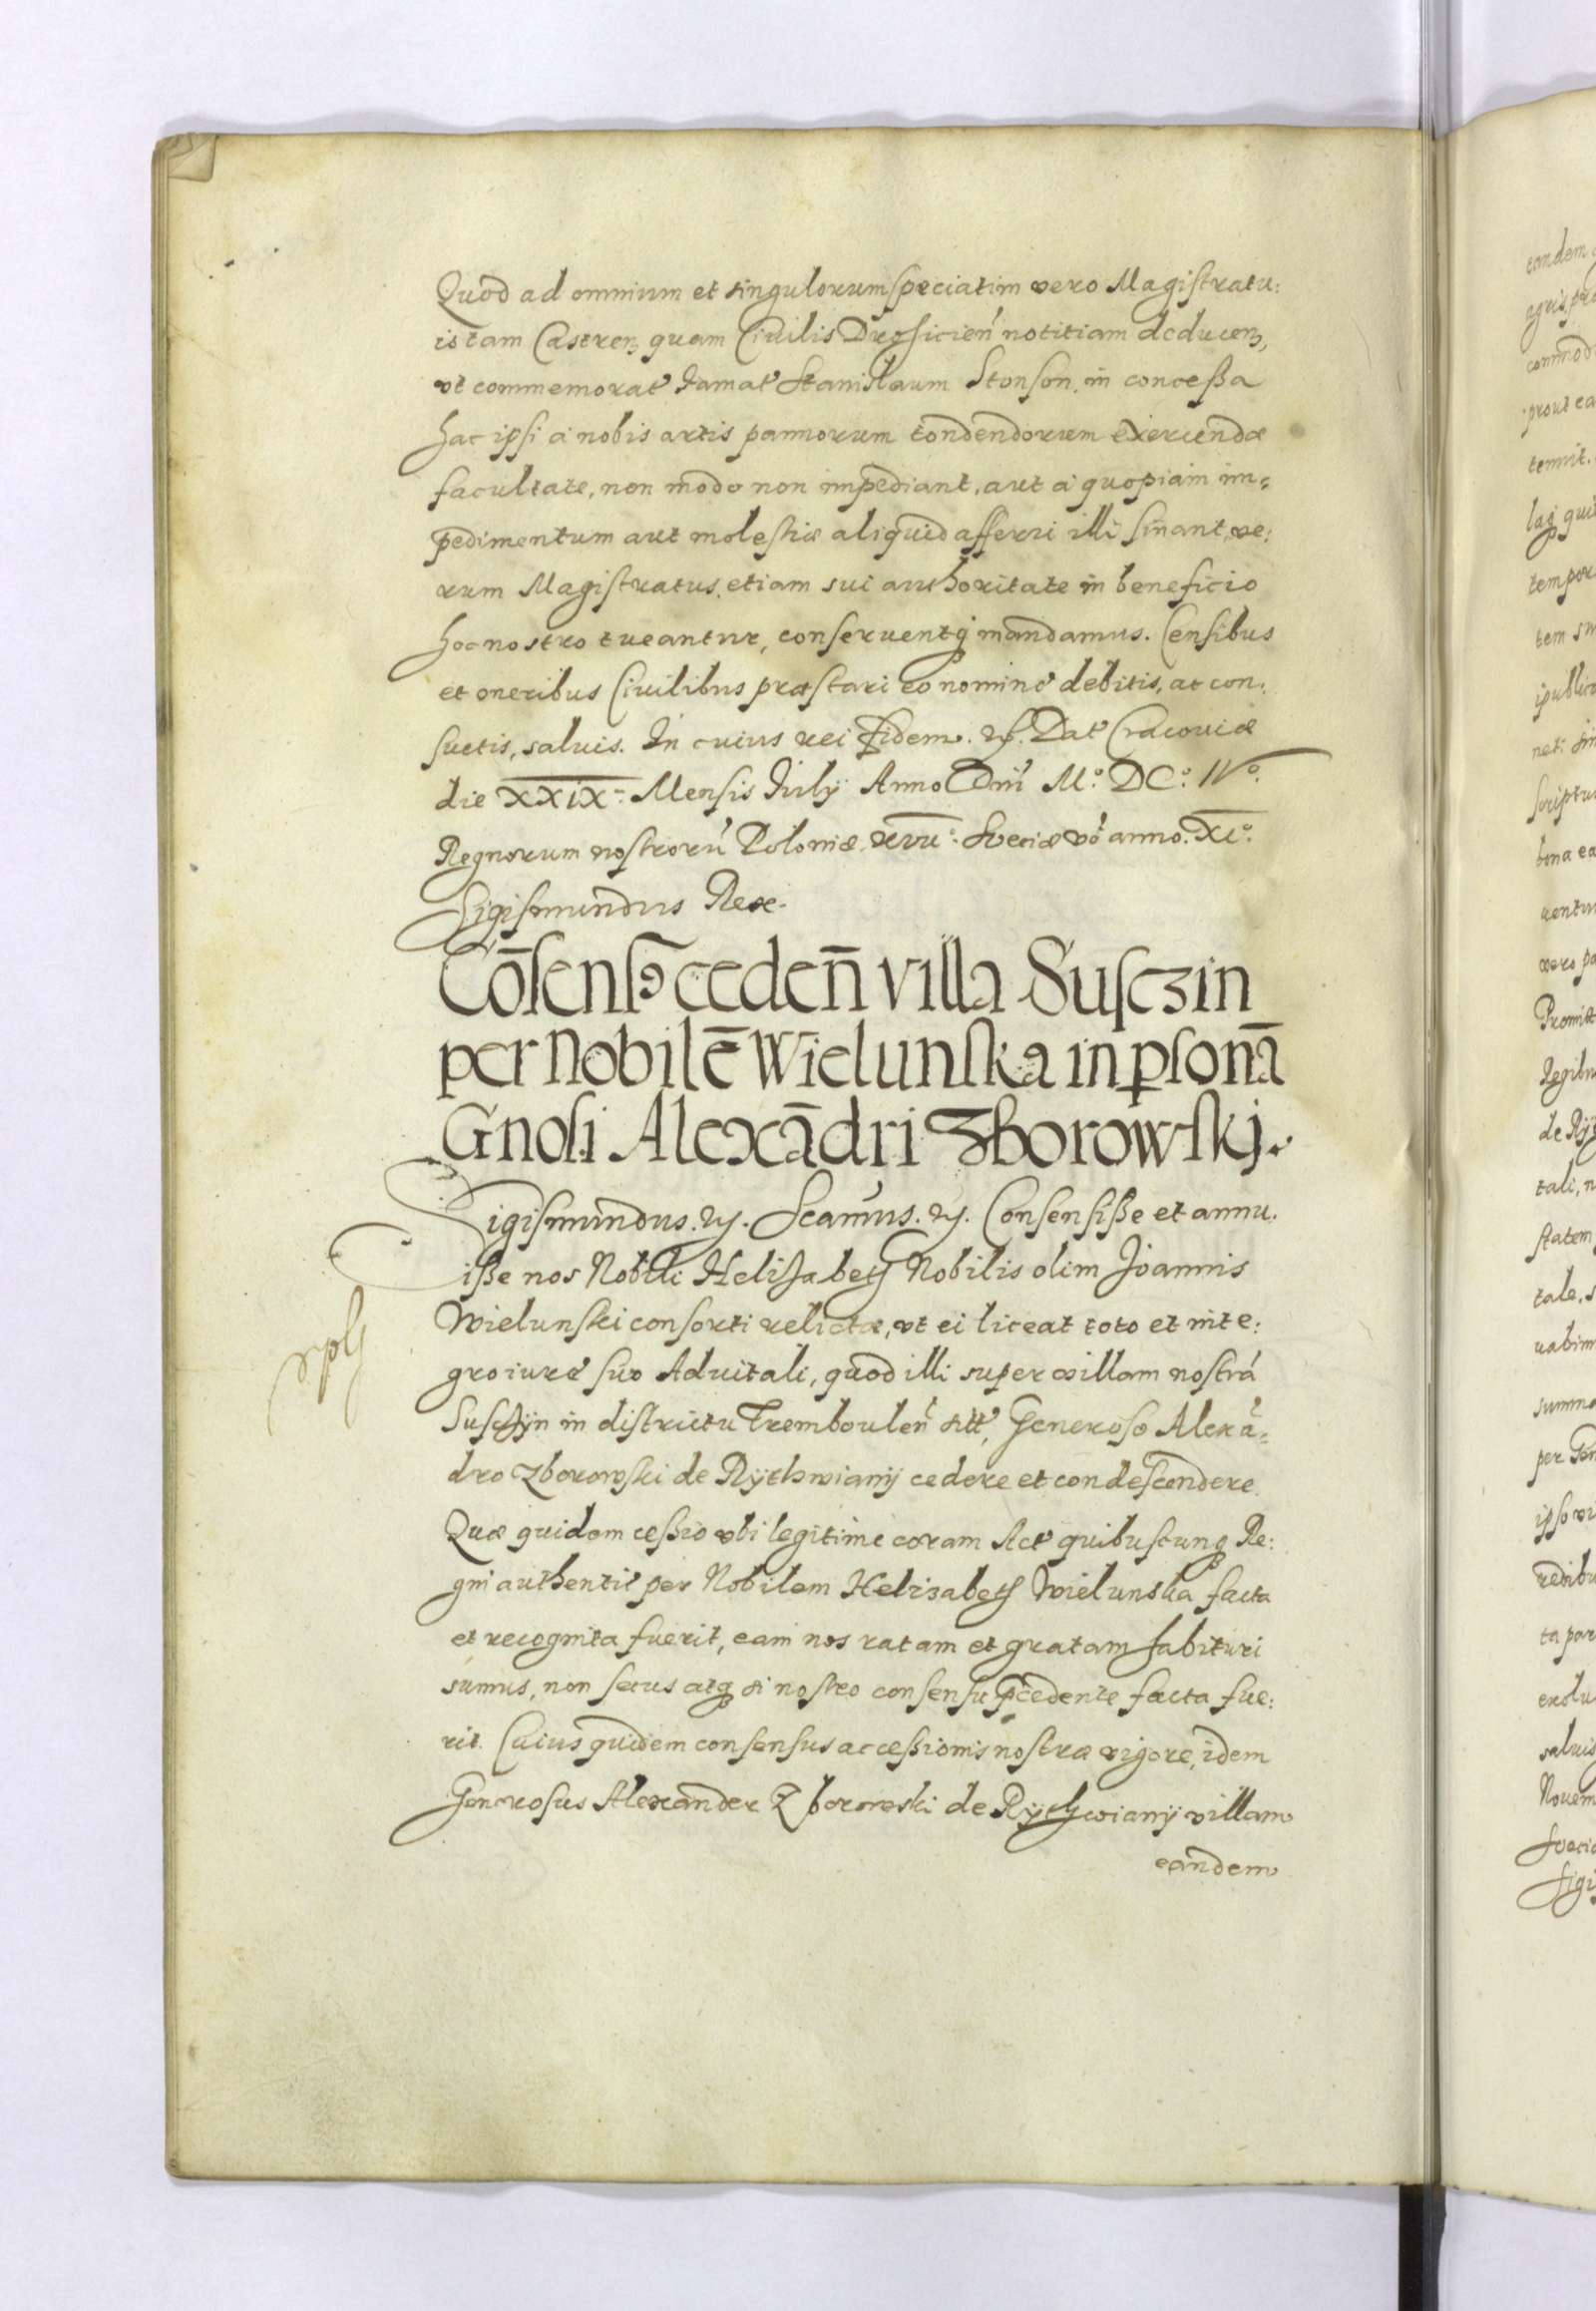 Quod ad omnium et singulorum speciatim vero Magistratu:
is tam Castren, quam Civilis Drohicien̄ notitiam deducen,
vt commemorat, Jamat Stanislaum Stonson, in concessa
hac ipsi à nobis artis pannorum tondendorum exercendæ
facultate, non modo non impediant, aut à quopiam im=
pedimentum aut molestiæ aliquid afferri illi sinant, ve:
rum Magistratus etiam sui authoritate in beneficio
hoc nostro tueantur, conseruentq; mandamus. Censibus
et oneribus Ciuilibus præstari eo nomine debitis, ac con:
suetis, saluis. In cuius rei fidem. Dat Cracouiæ
die XXIX: Mensis July Anno Dnī M.º DC.º IVº.
Regnorum nostrorū Poloniæ. xvii.º Sveciæ vº anno. XIº.
Sigismundus Rex.
Cōsens9 ceden̄ villa Susczin
per Nobilē Wielunska in psonā
Gnosi Alexādri Zborowskj.
Sigismundus. Scamus. Consensisse et annu.
isse nos Nobili Helisabeth Nobilis olim Joannis
Wielunski consorti relictæ, vt ei liceat toto et inte:
gro iure suo Aduitali, quod illi super villam nostrā
Susczÿn in districtu Tremboulen̄ sitt, Generoso Alexā=
dro Zborowski de Rÿthwianÿ cedere et condescendere.
Quæ quidem cessio vbi legitime coram Act quibuscunq Re:
gni authentic per Nobilem Helizabeth Wielunska facta
et recognita fuerit, eam nos ratam et gratam habituri
sumus, non secus atq; si nostro consensu pcedente facta fue:
rit. Cuius quidem consensus ac cessionis nostræ vigore, idem
Generosus Alexander Zborowski de Rÿthwianÿ villam
eandem